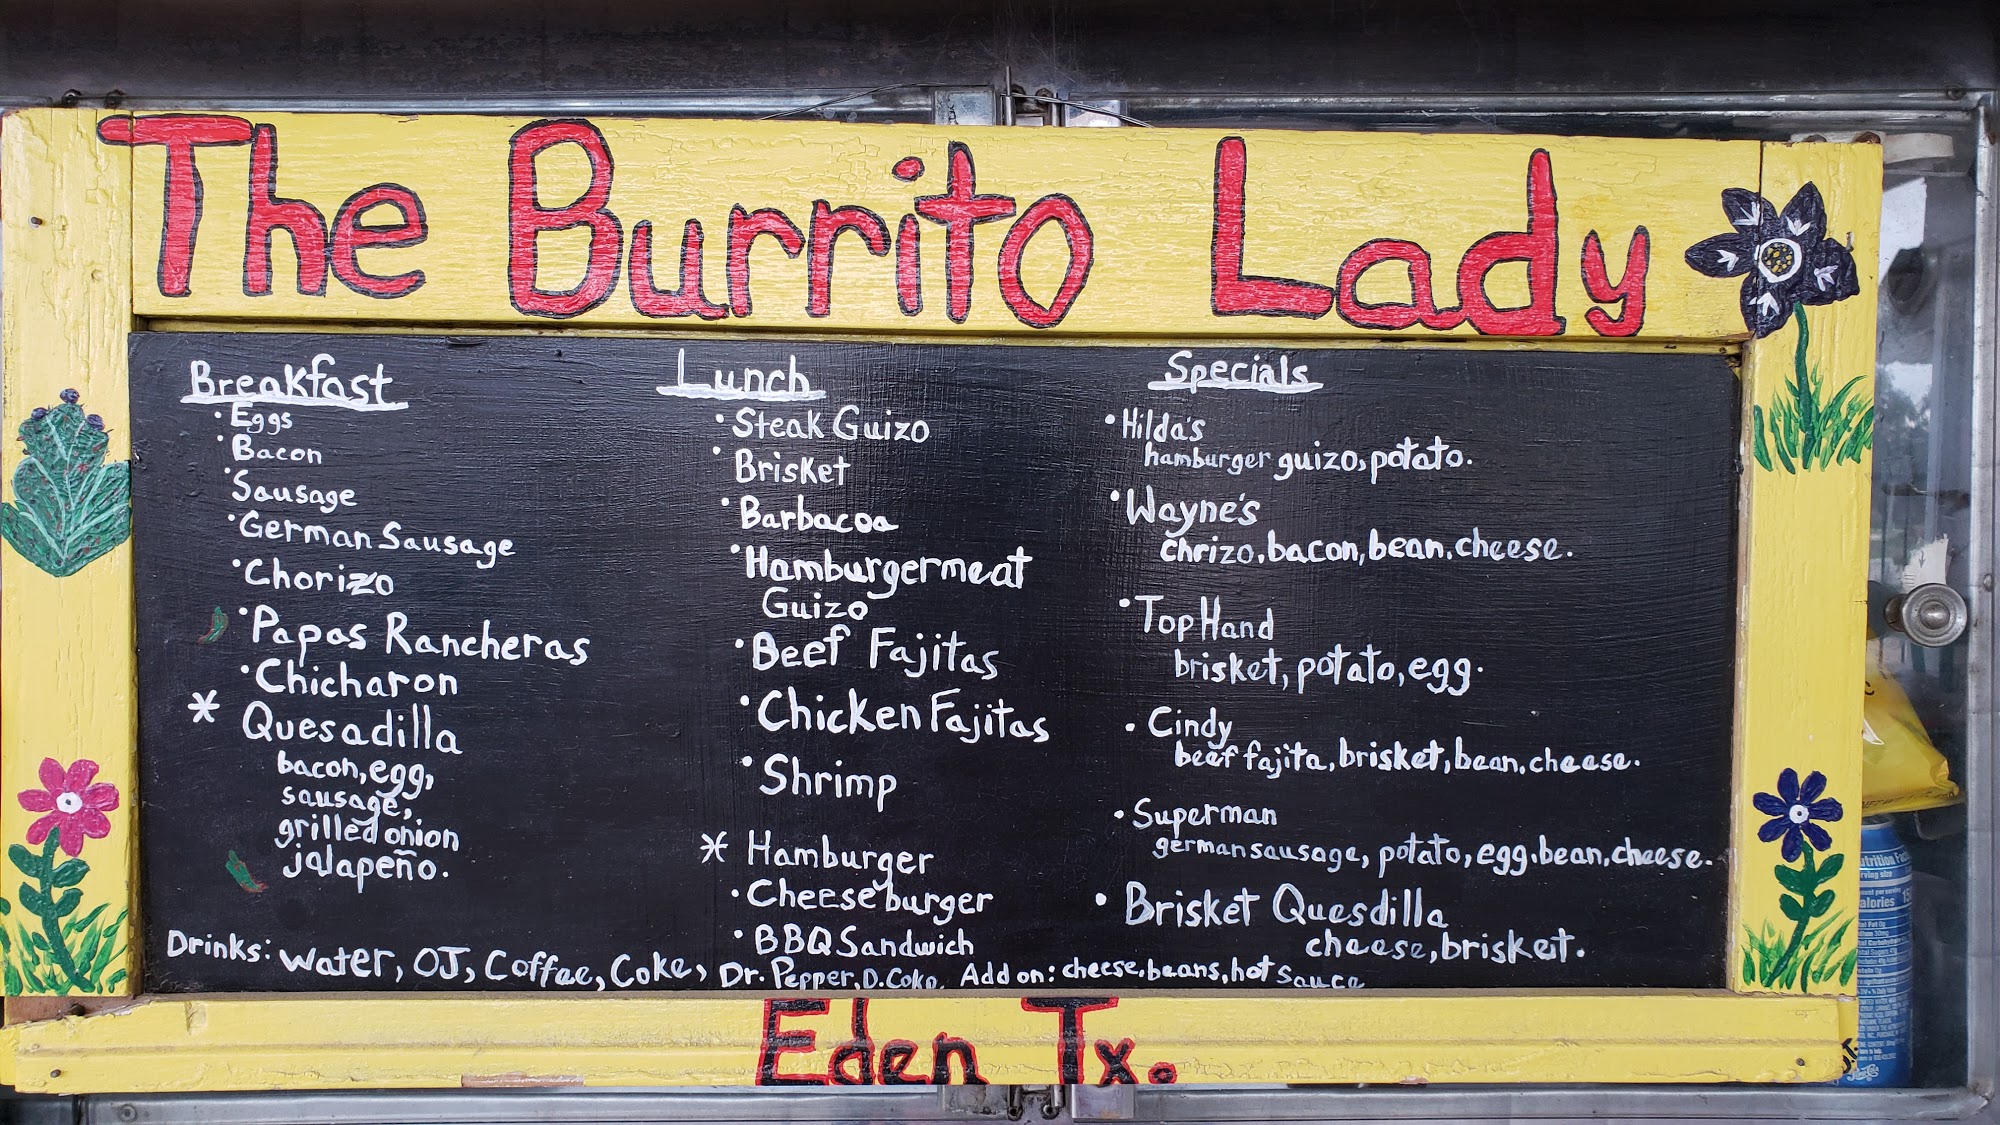 The Burrito Lady
Breakfast
• Eggs
• Bacon
• Sausage
• German Sausage
• Chorizo
• Papas Rancheras
• Chicharon
* Quesadilla
bacon, egg,
sausage,
grilled oñion
jalapeño.
Lunch
• Steak Guizo
• Brisket
• Barbacoa
• Hamburgermeat
Guizo
• Beef Fajitas
• Chicken Fajitas
• Shrimp
* Hamburger
• Cheeseburger
• BBQ Sandwich
Specials
• Hilda's
hamburger guizo, potato.
• Wayne's
chrizo, bacon, bean, cheese.
• Top Hand
brisket, potato, egg.
• Cindy
beef fajita, brisket, bean, cheese.
• Superman
german sausage, potato, egg, bean, cheese.
• Brisket Quesdilla
cheese, brisket.
Drinks: Water, OJ, Coffee, Coke, Dr. Pepper, D. Coke, Add on: cheese, beans, hot sauce
Eden Tx.